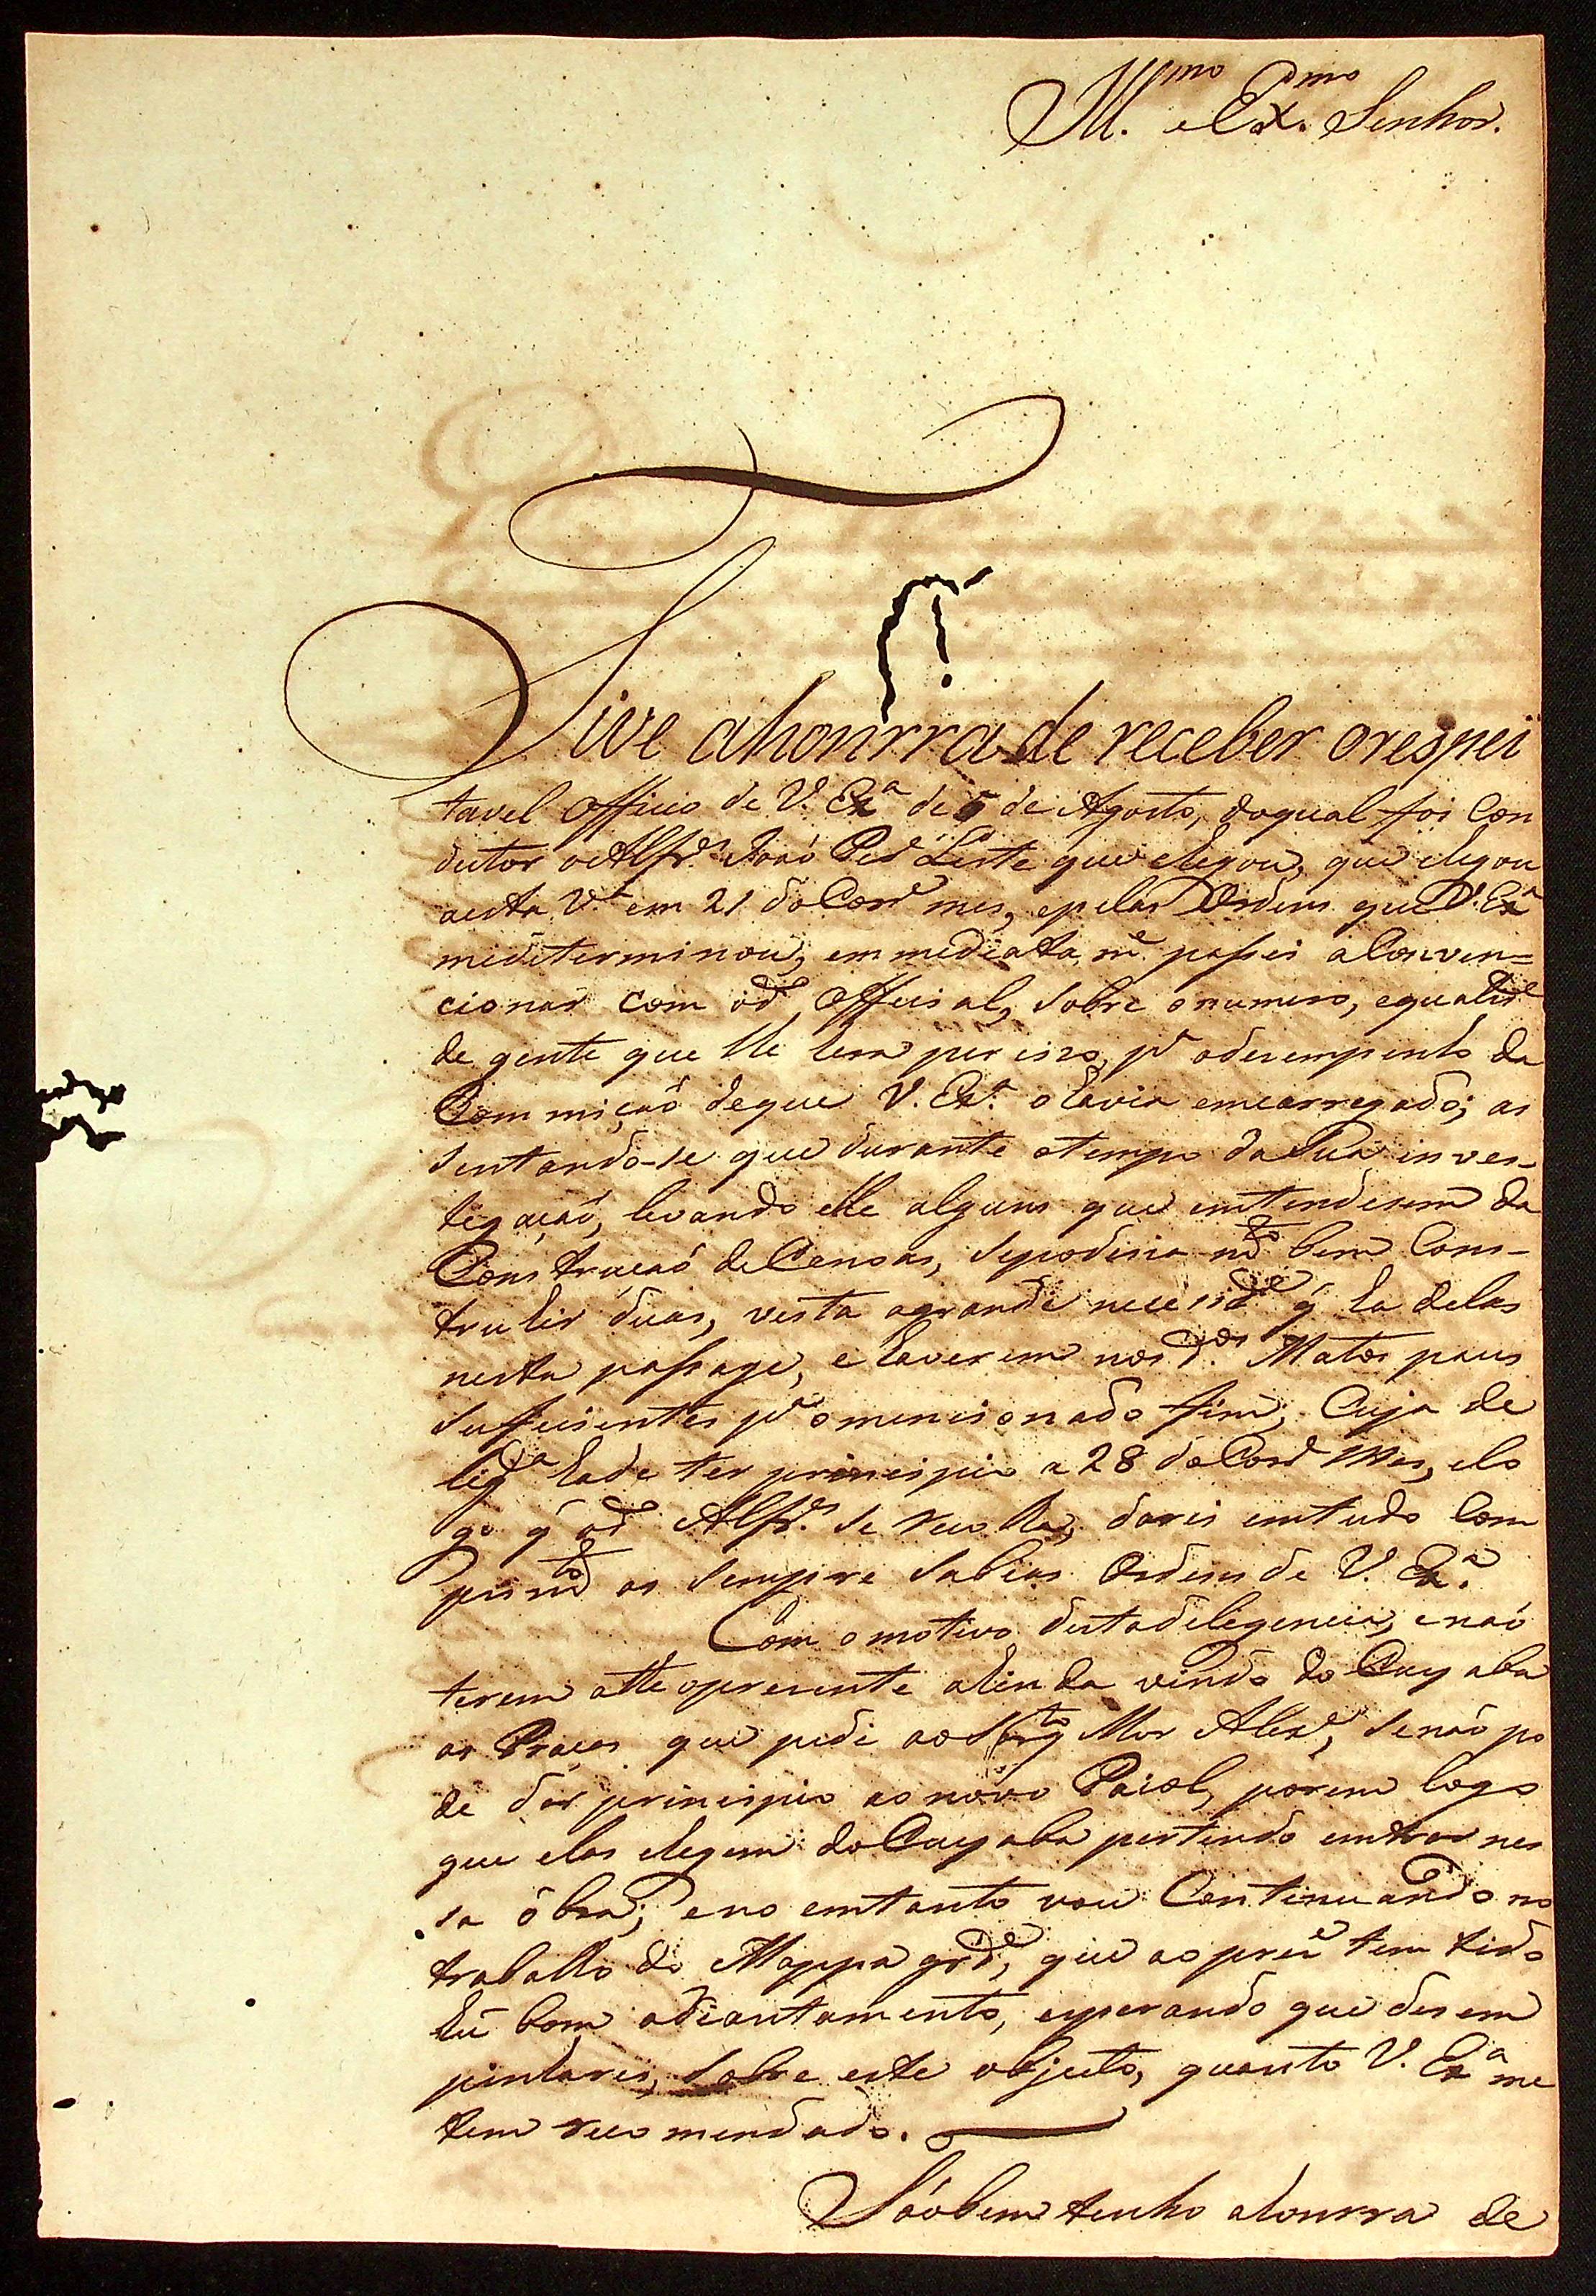 Ill.mo e Ex.mo Senhor.
Tive ahonrra de receber orespei
tavel Officio de V. Exa de 5 de Agosto, doqual foi Con
dutor oAlfs João Pedo Leste que chegou, que chegou
aesta Va em 21 doCore mes, epelas Ordens que V. Exa
mediterminou, emmediata me. passei a Conven=
cionar com odo Official, sobre onumero, equalide
de gente que lhe hera perciso, pa odesempenho da
Com mição deque V. Exa. o havia emcarregado; as
sentando-se que durante otempo da Sua inves-
tegação, levando elle alguns que emtendesem da
Construcaõ deCanoas, sepoderia mto bem Cons-
truhir duas, vesta agrande necessde q ha delas
nesta passage, e haverem nos dos. Matos paus
Sufficientes pa omencionado fim; Cuja de
liga hade ter principio a 28 doCore Mes, elo
go q odo Alfs. se recolha, darei emtudo Com
primto as sempre Sabias Ordens de V. Exa.
Com omotivo destadelegencia, enaõ
terem athe opresente ahinda vindo do Cuyaba
as Praças que pedi aoSargto Mor Alexe, senaõ po
de dar principio ao novo Paiol, porem logo
que elas chegem doCuyaba pertendo emtrar nes
sa óbra; eno emtanto vou Continuando no
trabalho do Mappa grde, que ao preze tem tido
hũ bom adiantamento, esperando que desem
penharei, sobre este objecto, quanto V. Exa me
tem recomendado.
Taõbem tenho ahonrra de